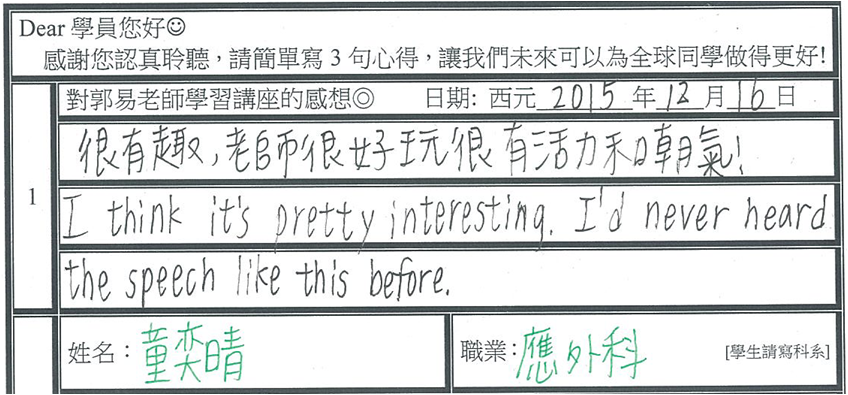 Dear 學員您好☺
感謝您認真聆聽，請簡單寫 3 句心得，讓我們未來可以為全球同學做得更好!
對郭易老師學習講座的感想◎ 日期: 西元 2015 年 12 月 16 日
1
很有趣,老師很好玩很有活力和朝氣!
I think it's pretty interesting. I'd never heard
the speech like this before.
姓名：童奕晴 職業：應外科 [學生請寫科系]